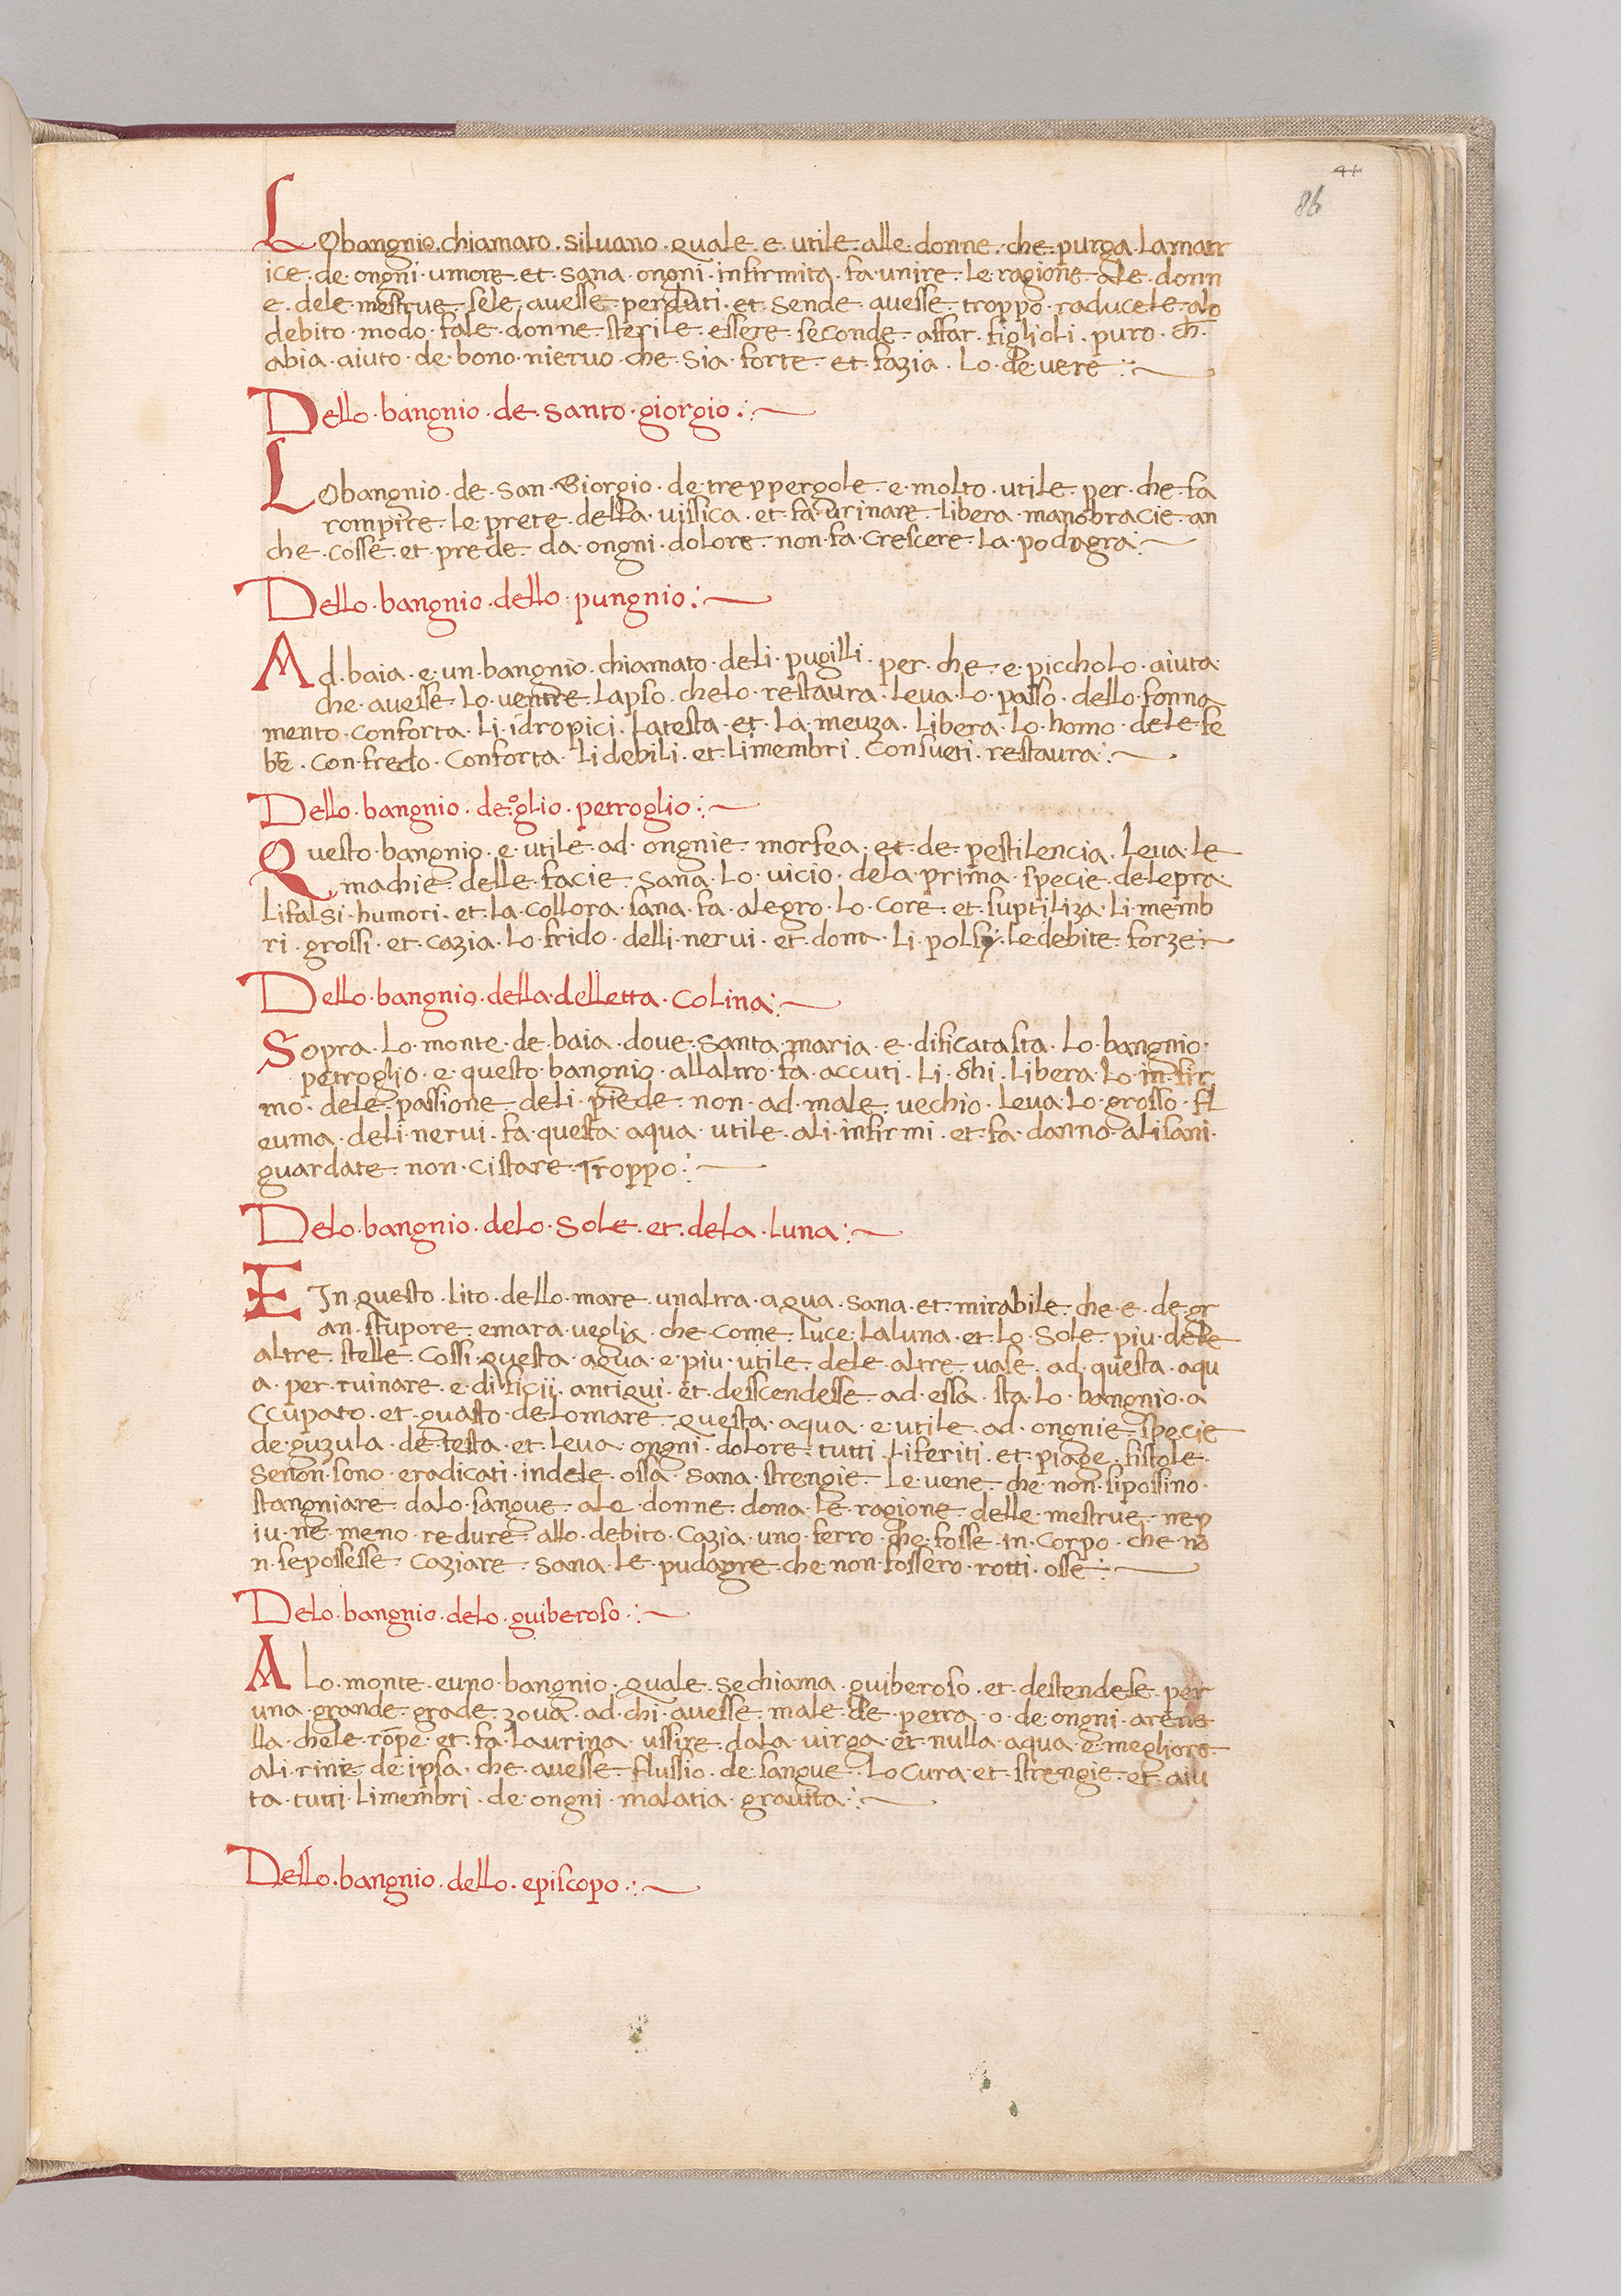 41
86
Lo bangnio. chiamato. siluano. quale. e. utile. alle. donne. che. purga. Lamatr
ice. de ongni. umore. et. sana. ongni. infirmita. fa. unire. le. ragione. ale. donn
e. dele. mestrue. sele. auesse. perduti. et. sende. auesse. troppo. raducele. alo
debito. modo. fale. donne. sterile. essere. feconde. affar. figlioli. puro. ch.
abia. aiuto. de. bono. nieruo. che. sia. forte. et. fazia. lo. devere :~
Dello. bangnio. de. santo. giorgio :~
Lo bangnio. de. san. Giorgio. de treppergole. e. molto. utile. per. che. fa
rompire. le. prete. della. uissica. et. fa. urinare. libera. mano. bracie. an
che. cosse. et. prede. da. ongni. dolore. non. fa. crescere. la. podagra :~
Dello. bangnio. dello. pungnio :~
Ad. baia. e. un. bangnio. chiamato. deli. pugilli. per. che. e. piccholo. aiuta.
che. auesse. lo. uentre. lapso. chelo. restaura. leua. lo. passo. dello. fonna
mento. conforta. li. idropici. latesta. et. la. meuza. libera. lo. homo. dele. fe
bre. con. fredo. conforta. lidebili. et. limembri. consueti. restaura :~
Dello. bangnio. de oglio. petroglio :~
Questo. bangnio. e. utile. ad. ongnie. morfea. et. de. pestilencia. leua. le
machie. delle. facie. sana. lo. uicio. dela. prima. specie. delepra.
lisalsi. humori. et. la. collora. sana. fa. alegro. lo. core. et. suptiliza. li. memb
ri. grossi. et. cazia. lo. frido. delli. nerui. et. dona. li. polsi. le debite. forze :~
Dello. bangnio. della. delletta. colina :~
Sopra. lo. monte. de. baia. doue. santa. maria. e. dificata sta. lo. bangnio.
petroglio. e. questo. bangnio. allaltro. fa. accuti. li. ochi. libera. lo. infir
mo. dele. passione. deli. piede. non. ad. male. uechio. leua. lo. grosso. fl
euma. deli. nerui. fa. questa. aqua. utile. ali. infirmi. et. fa. danno. alisani.
guardate. non. cistare. troppo :~
Delo. bangnio. delo. sole. et. dela. luna :~
E In. questo. lito. dello. mare. unaltra. aqua. sana. et. mirabile. che. e. de. gr
an. stupore. emara. ueglia. che. come. luce. laluna. et. lo. sole. piu. dele
altre. stelle. cossi. questa. aqua. e. piu. utile. dele. altre. uase. ad. questa. aqu
a. per. ruinare. e. dificij. antiqui. et. desscendesse. ad. essa. sta. lo. bangnio. a
ccupato. et. guasto. delomare. questa. aqua. e. utile. ad. ongnie. specie
de. guzula. de. testa. et. leua. ongni. dolore. tutti. liferiti. et. piage. fistole.
senon. sono. eradicati. indele. ossa. sana. strengie. le. uene. che. non. sipossino.
stangniare. dalo. sangue. ale. donne. dona. le. ragione. delle. mestrue. nep
iu. ne. meno. redure. allo. debito. cazia. uno. ferro. che. fosse. in. corpo. che. no
n. sepossesse. caziare. sana. le. pudagre. che. non. fossero. rotti. osse :~
Delo. bangnio. delo. guiberoso :~
Alo. monte. euno. bangnio. quale. sechiama. guiberoso. et. destendese. per
una. grande. grade. zoua. ad. chi. auesse. male. de. petra. o. de. ongni. arene
lla. chele. rope. et. fa. laurina. ussire. dala. uirga. et. nulla. aqua. e. megliore.
ali. rinie. de ipsa. che. auesse. flussio. de. sangue. lo cura. et. strengie. et. aiu
ta. tutti. limembri. de. ongni. malatia. grauita :~
Dello. bangnio. dello. episcopo :~